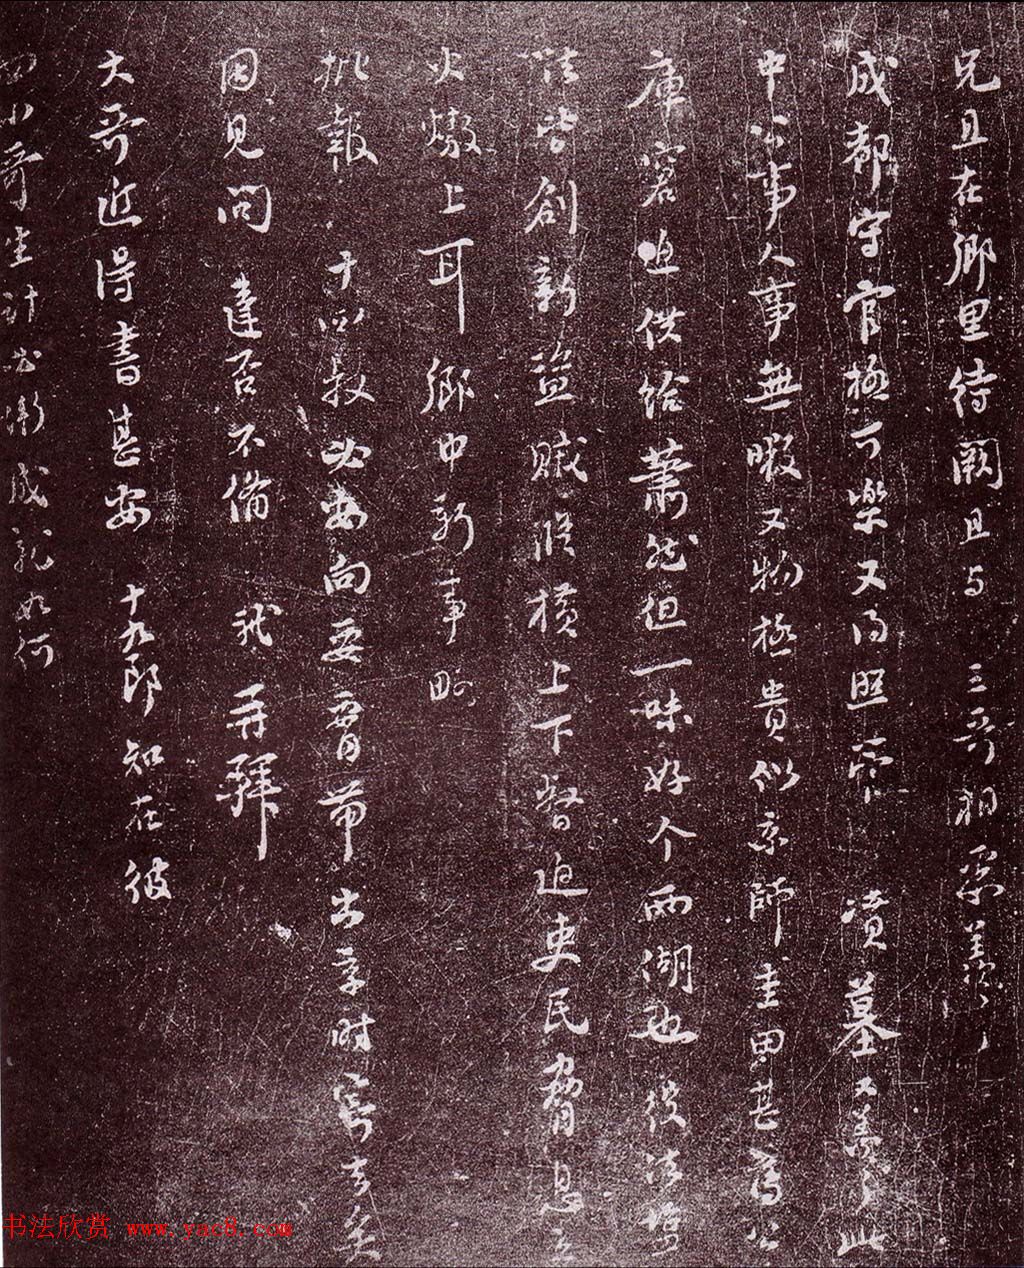 兄且在鄉里待闕且与 三哥相聚羡々
成都守官極可樂又得照管 墳墓又羡々此
中公事人事無暇又物極貴似京師圭田甚薄公
庫窘迫供給蕭然但一味好个西湖也役法塩
法皆創新盜賊縱橫上下督迫吏民脅息立
火上耳鄉中新事略
批報 十四叔必安向要出京时寄去矣
因見問達否不備 軾 再拜
大哥近得書甚安 十九郎知在彼
四小哥生計必漸成就如何
书法欣赏 www.yac8.com